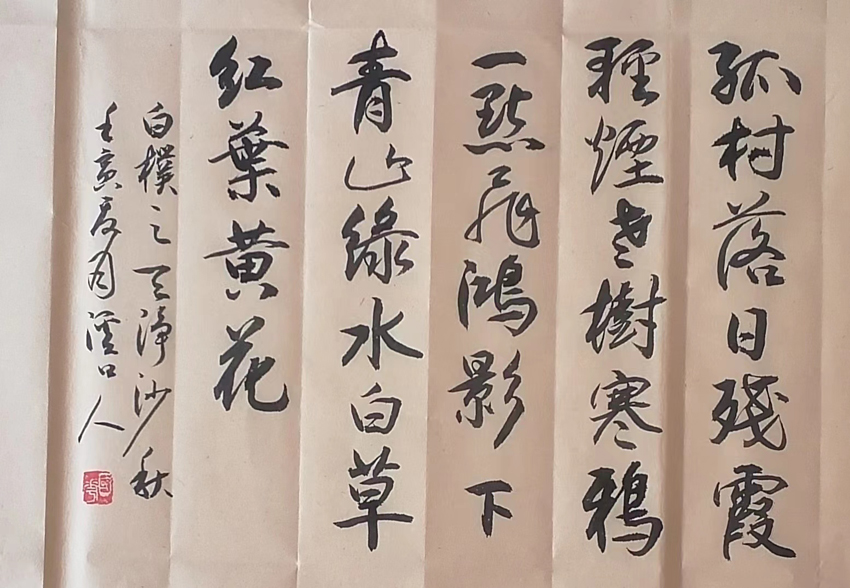 孤村落日殘霞
輕煙老樹寒鴉
一點飛鴻影下
青山綠水白草
紅葉黃花
白樸之天淨沙秋
壬寅夏月溪口人